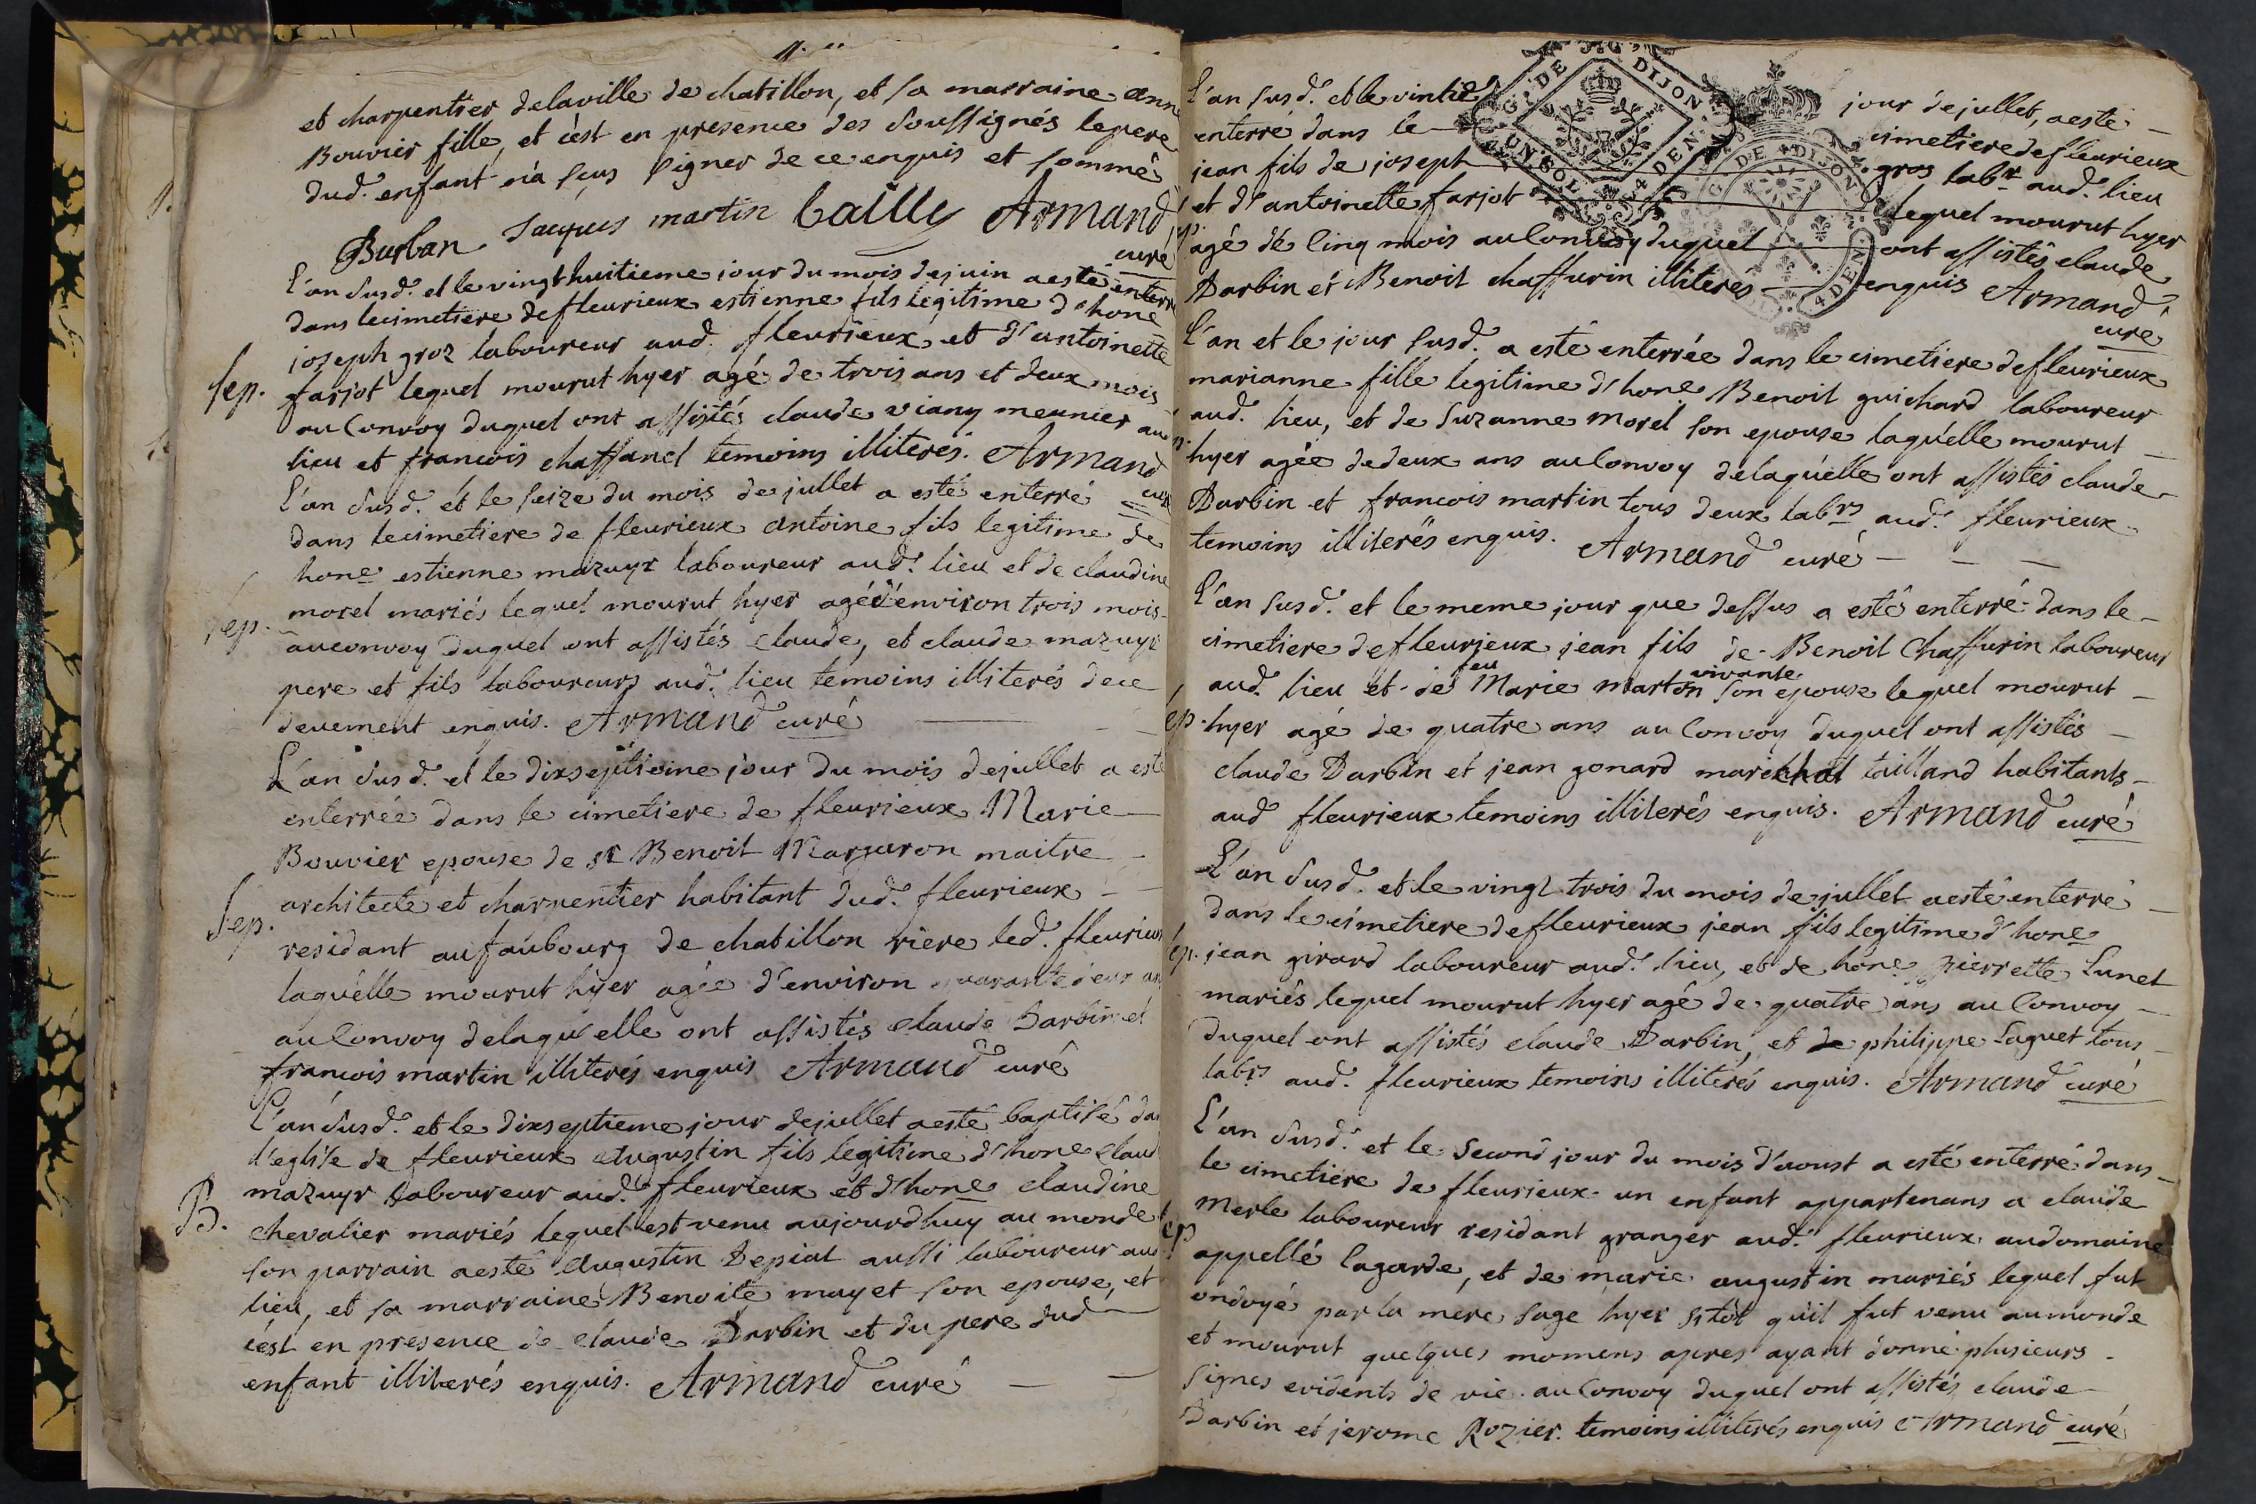 et charpentier delaville de chatillon, et sa marraine anne
Bouvier fille, et c'est en presence des soussignés lepere
dud. enfant n'a sçus signer de ce enquis et sommé
Burban Jacques martin Armand
curé
l'an susd. et le vingt huitieme jour du mois dejuin aesté enterré
dans lecimetiere defleurieux estienne fils legitime d'hone
joseph groz laboureur aud. fleurieux et d'antoinette
Sep. farjot lequel mourut hyer agé de trois ans et deux mois
au Convoy duquel ont assistés claude viany meunier aud
lieu et francois chaffanel temoins illiterés. Armand
curé
l'an susd. et le seize du mois de jullet a esté enterré
dans lecimetiere de fleurieux antoine fils legitime de
hone estienne mazuyr laboureur aud. lieu et de claudine
morel mariés lequel mourut hyer agé d'environ trois mois
Sep. auconvoy duquel ont assistés claude, et claude mazuyr
pere et fils laboureurs aud. lieu temoins illiterés dece
deuement enquis. Armand curé
L'an susd. et le dixseptieme jour du mois dejullet a esté
enterrée dans le cimetiere de fleurieux Marie
Bouvier epouse de sr Benoit Margaron maitre
architecte et charpentier habitant dud. fleurieux
Sep. residant aufaubourg de chatillon riere led. fleurieux
laquelle mourut hyer agée d'environ quarante deux ans
au Convoy delaquelle ont assistés claude Darbin et
francois martin illiterés enquis Armand curé
L'an susd. et le dixseptieme jour dejullet aesté baptisé dans
l'eglise de fleurieux augustin fils legitime d'hone claude
mazuyr laboureur aud. fleurieux et d'hone claudine
B. chevalier mariés lequel est venu aujourdhuy au monde
son parrain aesté augustin Depial aussi laboureur aud
lieu, et sa marraine Benoite mayet son epouse, et
c'est en presence de claude Darbin et du pere dud
enfant illiterés enquis. Armand curé
L'an susd. et le jour de jullet, aesté
enterré dans le cimetiere de fleurieux
jean fils de joseph gros labr. aud. lieu
et d'antoinette farjot lequel mourut hyer
agé de Cinq mois au Convoy duquel ont assistés claude
Darbin et Benoit chaffurin illiterés enquis Armand
curé
G. DE DIJON
UN SOL 4 DEN.
G. DE DIJON
4 DEN.
l'an et le jour susd. a esté enterrée dans le cimetiere defleurieux
marianne fille legitime d'hone Benoit guichard laboureur
aud. lieu, et de Suzanne morel son epouse laquelle mourut
hyer agée dedeux ans au Convoy delaquelle ont assistés claude
Darbin et francois martin tous deux labrs aud. fleurieux
temoins illiterés enquis. Armand curé
L'an susd. et le meme jour que dessus a esté enterré dans le
cimetiere defleurieux jean fils de Benoit Chaffurin laboureur
aud. lieu et de feu Marie marton vivante son epouse lequel mourut
Sep. hyer agé de quatre ans au Convoy duquel ont assistés
claude Darbin et jean gonard marechal tailland habitants
aud fleurieux temoins illiterés enquis. Armand curé
L'an susd. et le vingt trois du mois de jullet aesté enterré
dans le cimetiere defleurieux jean fils legitime d'hone
Sep. jean girard laboureur aud. lieu, et de hone pierrette Lunet
mariés lequel mourut hyer agé de quatre ans au Convoy
duquel ont assistés claude Darbin, et de philippe Laguet tous
labrs aud. fleurieux temoins illiterés enquis. Armand curé
L'an susd. et le second jour du mois d'aoust a esté enterré dans
le cimetiere de fleurieux un enfant appartenans a claude
merle laboureur residant granger aud. fleurieux audomaine
Sep appellé lagarde, et de marie augustin mariés lequel fut
ondoyé par la mere sage hyer sitôt qu'il fut venu aumonde
et mourut quelques momens apres ayant donné plusieurs
signes evidents de vie. au Convoy duquel ont assistés claude
Darbin et jerome Rozier temoins illiterés enquis Armand curé